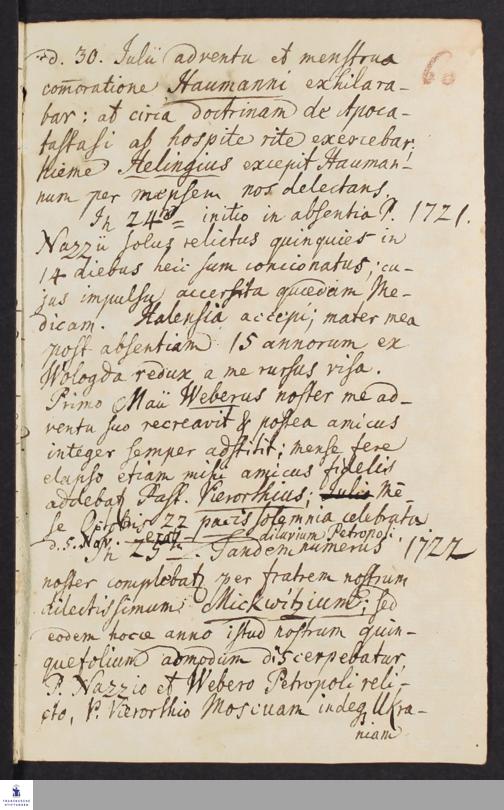 d. 30. Julii adventu et menstrua
com̄oratione Haumanni exhilara-
bar: at circa doctrinam de Apoca-
tastasi ab hospite rite exercebar;
hieme Helingius excepit Hauman-
num per mensem nos delectans.
In 24 initio in absentia P. 1721.
Nazzii solus relictus quinquies in
14 diebus heic sum concionatus; cu-
jus impulsu accersita quædam Me-
dicam. Halensia accepi; mater mea
post absentiam 15 annorum ex
Wologda redux a me rursus visa.
Primo Maii Weberus noster me ad-
ventu suo recreavit & postea amicus
integer semper adstitit; mense fere
elapso etiam mihi amicus fidelis
addebat Past. Vierorthius; Julio Mē-
se Octobr 22 pacis solemnia celebrata
d. 5. Nov. erat diluvium Petropoli.
In 25 Tandem numerus 1722
noster complebat per fratrem nostrum
dilectissimum Mickwitzium; sed
eodem hocce anno istud nostrum quin-
quefolium admodum discerpebatur,
P. Nazzio et Webero Petropoli reli-
cto, P. Vierorthio Moscuam indeq Ukra-
niam
60